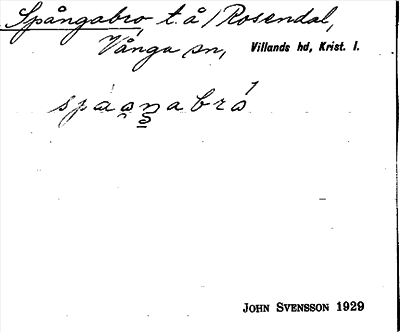 Spångabro, t. å / Rosendal,
Vånga sn, Villands hd, Krist. l.
JOHN SVENSSON 1929